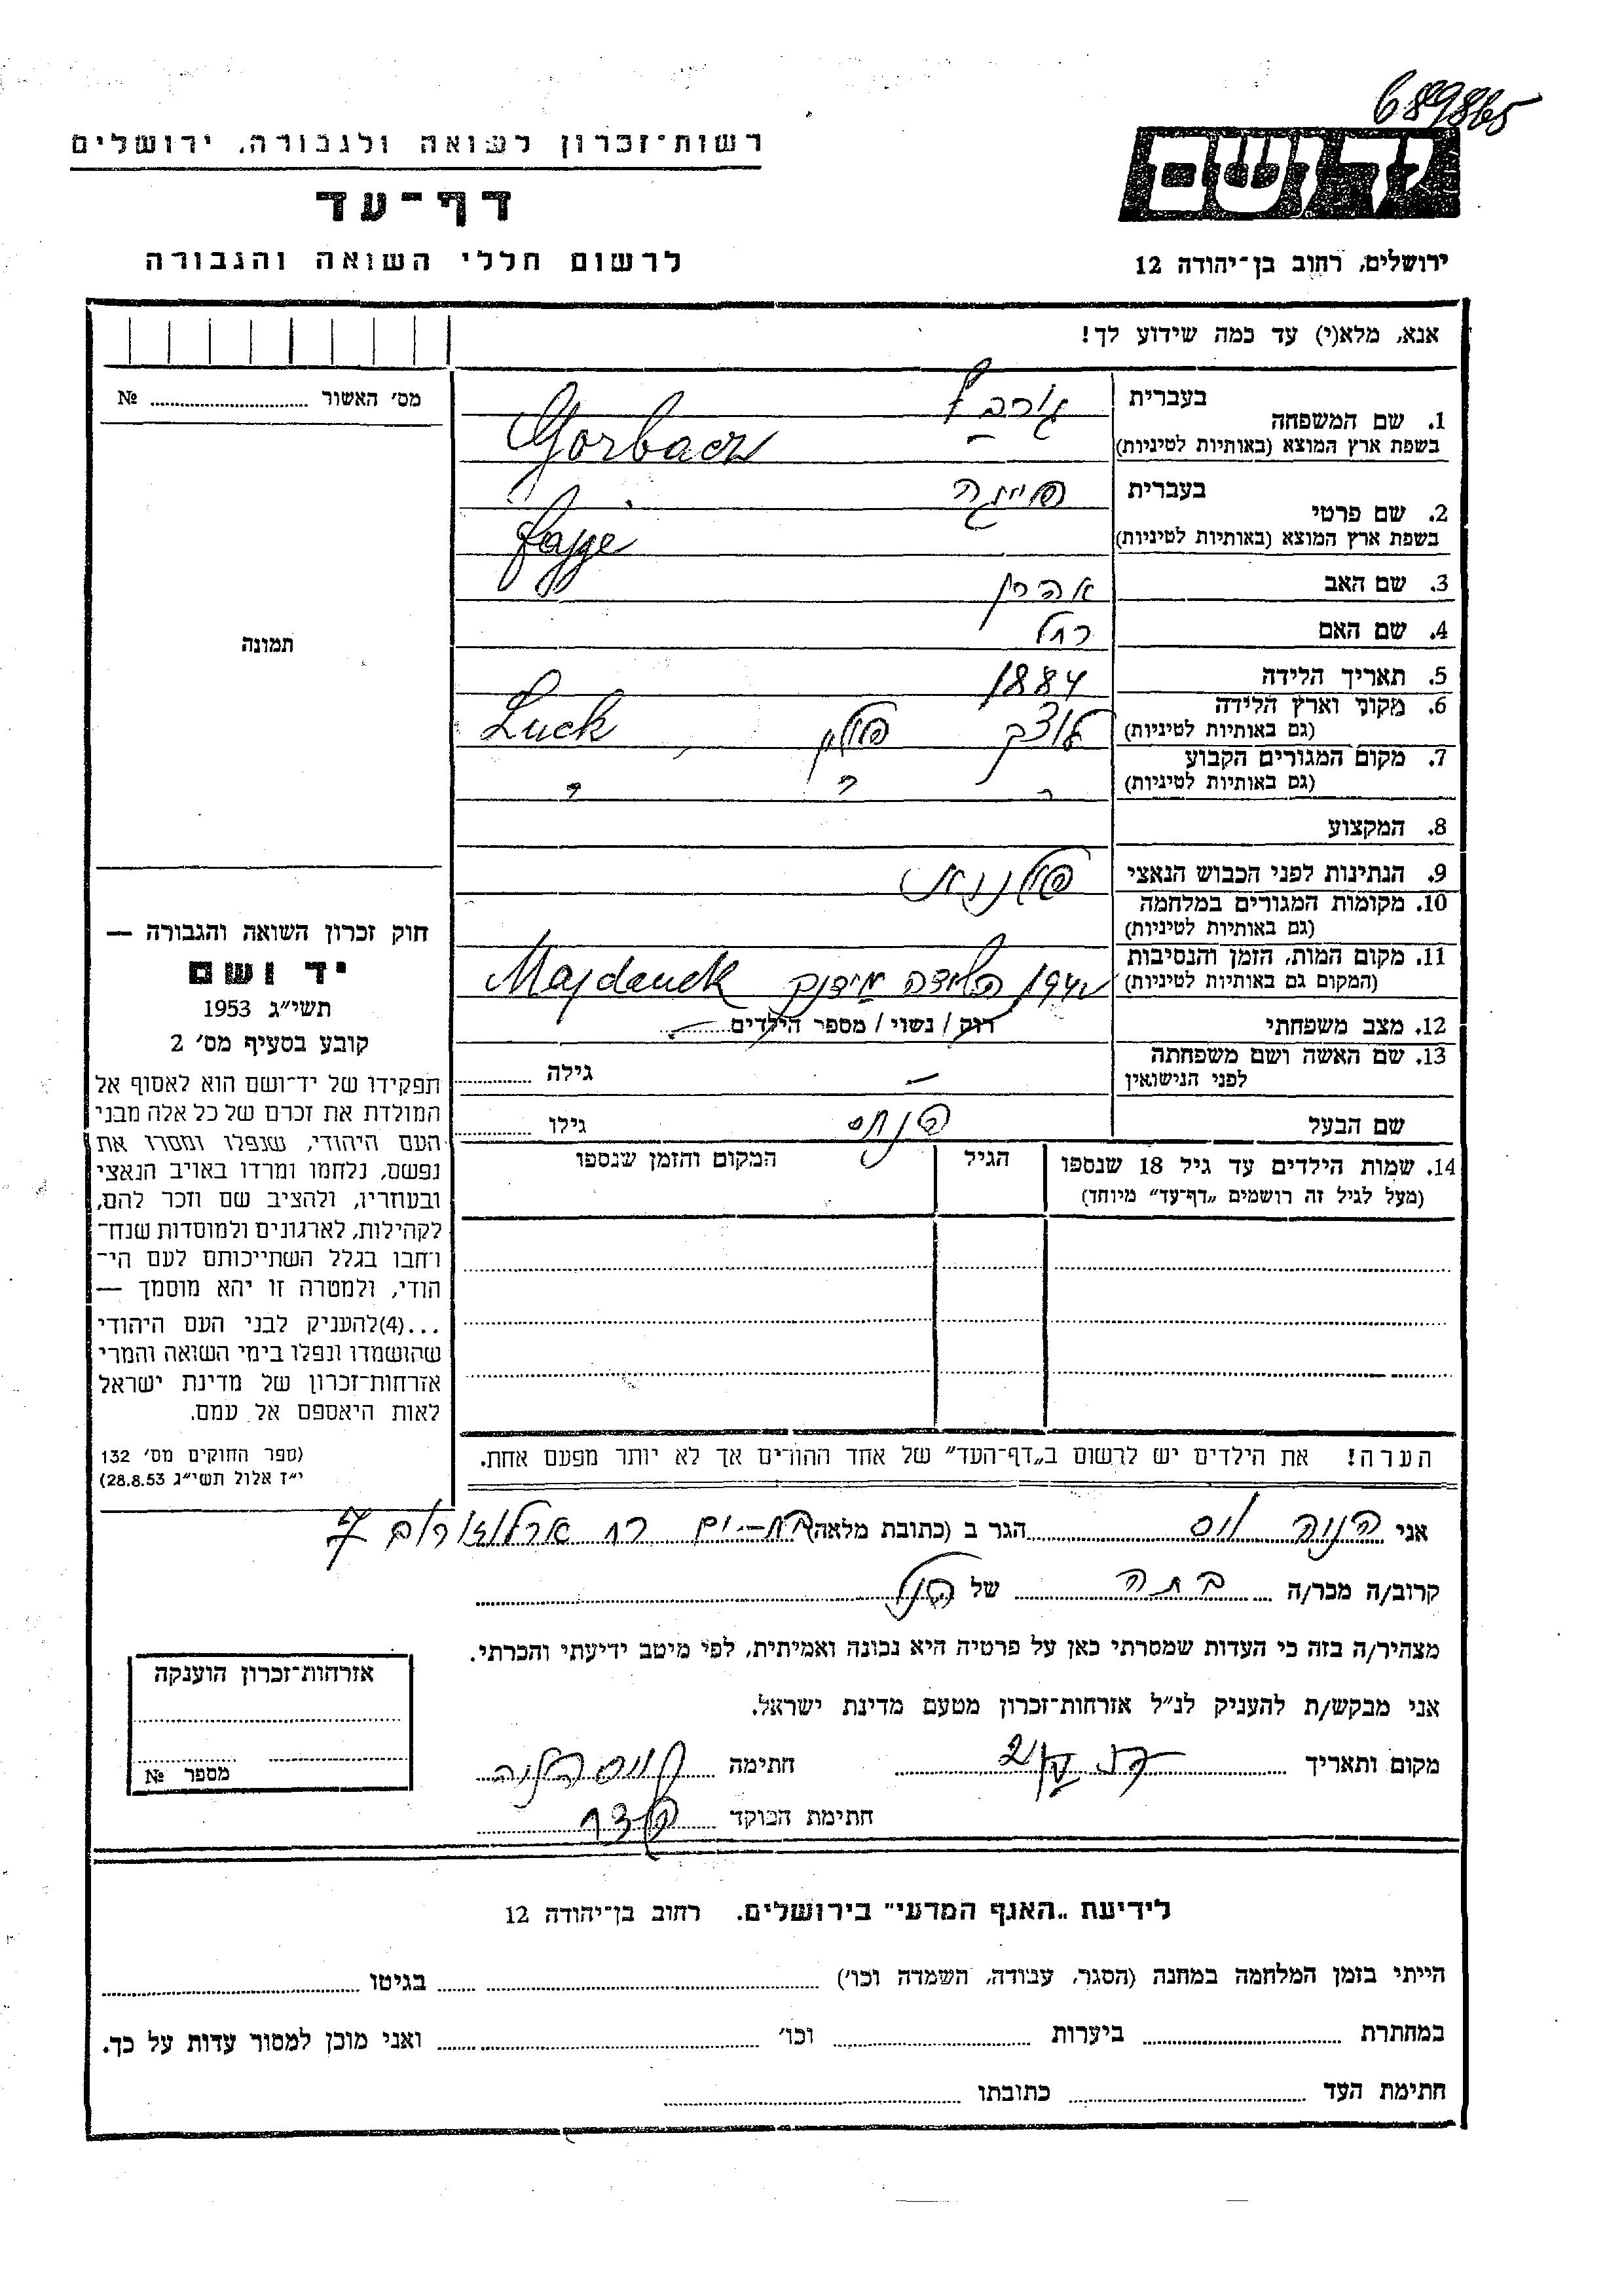 689865
רשות־זכרון לשואה ולגבורה, ירושלים
יד ושם
דף־עד
לרשום חללי השואה והגבורה
ירושלים, רחוב בן־יהודה 12
אנא, מלא(י) עד כמה שידוע לך!
מס׳ האשור № 
1. שם המשפחה
בעברית
בשפת ארץ המוצא (באותיות לטיניות)
Gorbacz
2. שם פרטי
בעברית פייגה
בשפת ארץ המוצא (באותיות לטיניות)
Fajge
3. שם האב אהרן
4. שם האם רחל
5. תאריך הלידה 1884
6. מקום וארץ הלידה
(גם באותיות לטיניות) לוצק פולין Luck
7. מקום המגורים הקבוע
(גם באותיות לטיניות) " " "
8. המקצוע
9. הנתינות לפני הכבוש הנאצי פולנית
10. מקומות המגורים במלחמה
(גם באותיות לטיניות)
11. מקום המות, הזמן והנסיבות
(המקום גם באותיות לטיניות) מידנק Majdanek
12. מצב משפחתי רוק / נשוי / מספר הילדים
13. שם האשה ושם משפחתה
לפני הנישואין – גילה
שם הבעל פנחס גילו
14. שמות הילדים עד גיל 18 שנספו
(מעל לגיל זה רושמים „דף־עד” מיוחד)
הגיל
המקום והזמן שנספו
הערה! את הילדים יש לרשום ב„דף־העד” של אחד ההורים אך לא יותר מפעם אחת.
תמונה
חוק זכרון השואה והגבורה —
יד ושם
תשי״ג 1953
קובע בסעיף מס׳ 2
תפקידו של יד־ושם הוא לאסוף אל
המולדת את זכרם של כל אלה מבני
העם היהודי, שנפלו ומסרו את
נפשם, נלחמו ומרדו באויב הנאצי
ובעוזריו, ולהציב שם וזכר להם,
לקהילות, לארגונים ולמוסדות שנח־
רחבו בגלל השתייכותם לעם הי־
הודי, ולמטרה זו יהא מוסמך —
...(4)להעניק לבני העם היהודי
שהושמדו ונפלו בימי השואה והמרי
אזרחות־זכרון של מדינת ישראל
לאות היאספם אל עמם.
(ספר החוקים מס׳ 132
י״ז אלול תשי״ג 28.8.53)
אני הניה וייס הגר ב (כתובת מלאה) בת-ים רח ארלוזורוב 7
קרוב/ה מכר/ה בתה של הנ״ל
מצהיר/ה בזה כי העדות שמסרתי כאן על פרטיה היא נכונה ואמיתית, לפי מיטב ידיעתי והכרתי.
אני מבקש/ת להעניק לנ״ל אזרחות־זכרון מטעם מדינת ישראל.
מקום ותאריך חתימה
חתימת הפוקד
אזרחות־זכרון הוענקה
מספר №
לידיעת „האגף המדעי” בירושלים, רחוב בן־יהודה 12
הייתי בזמן המלחמה במחנה (הסגר, עבודה, השמדה וכו׳) בגיטו
במחתרת ביערות וכו׳ ואני מוכן למסור עדות על כך.
חתימת העד כתובתו